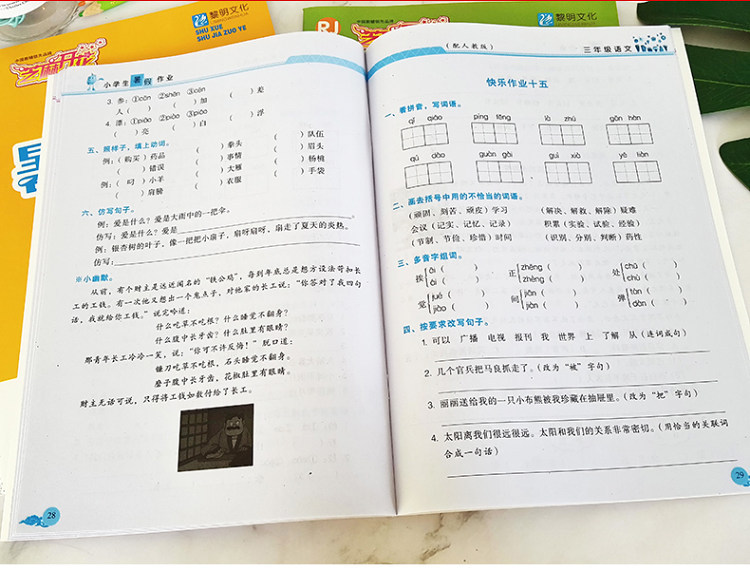 黎明文化
SHU XUE
SHU JIA ZUO YE
RJ
黎明文化
芝麻开花
小学生 暑 假 作业
3. 参：①cān ②shēn ③cēn
( )差
人( ) ( )加
4. 漂：①piāo ②piǎo ③piào
( )浮
( )亮 ( )白
五、照样子，填上动词。
例：(购买)药品 ( )拳头 ( )队伍
( )错误 ( )事情 ( )眉头
例：(叼)小羊 ( )大雁 ( )杨桃
( )肩膀 ( )衣服 ( )手袋
六、仿写句子。
例：爱是什么？爱是大雨中的一把伞。
仿写：爱是什么？爱是
例：银杏树的叶子，像一把把小扇子，扇呀扇呀，扇走了夏天的炎热。
仿写：
※小幽默。
从前，有个财主是远近闻名的“铁公鸡”，每到年底总是想方设法苛扣长
工的工钱。有一次他又想出一个鬼点子，对他家的长工说：“你答对了我四句
话，我就给你工钱。”说完吟道：
什么吃草不吃根？什么睡觉不翻身？
什么腹中长牙齿？什么肚里有眼睛？
那青年长工冷冷一笑，说：“你可不许反悔！”脱口道：
镰刀吃草不吃根，石头睡觉不翻身。
磨子腹中长牙齿，花椒肚里有眼睛。
财主无话可说，只得将工钱如数付给了长工。
28
(配人教版)
三年级语文
快乐作业十五
一、看拼音，写词语。
qī qiāo píng fēng lǚ zhú gǎn hàn
qǔ dào guān gài guī xiá yě liàn
二、画去括号中用的不恰当的词语。
(顽固、刻苦、顽皮)学习 (解决、解救、解除)疑难
会议(记实、记忆、记录) 积累(实验、试验、经验)
(节制、节俭、珍惜)时间 (识别、分别、判断)药性
三、多音字组词。
挨 āi ( ) ái ( )
正 zhēng ( ) zhèng ( )
处 chǔ ( ) chù ( )
觉 jué ( ) jiào ( )
间 jiān ( ) jiàn ( )
弹 tán ( ) dàn ( )
四、按要求改写句子。
1. 可以 广播 电视 报刊 我 世界 上 了解 从 (连词成句)
2. 几个官兵把马良抓走了。(改为“被”字句)
3. 丽丽送给我的一只小布熊被我珍藏在抽屉里。(改为“把”字句)
4. 太阳离我们很远很远。太阳和我们的关系非常密切。(用恰当的关联词
合成一句话)
29